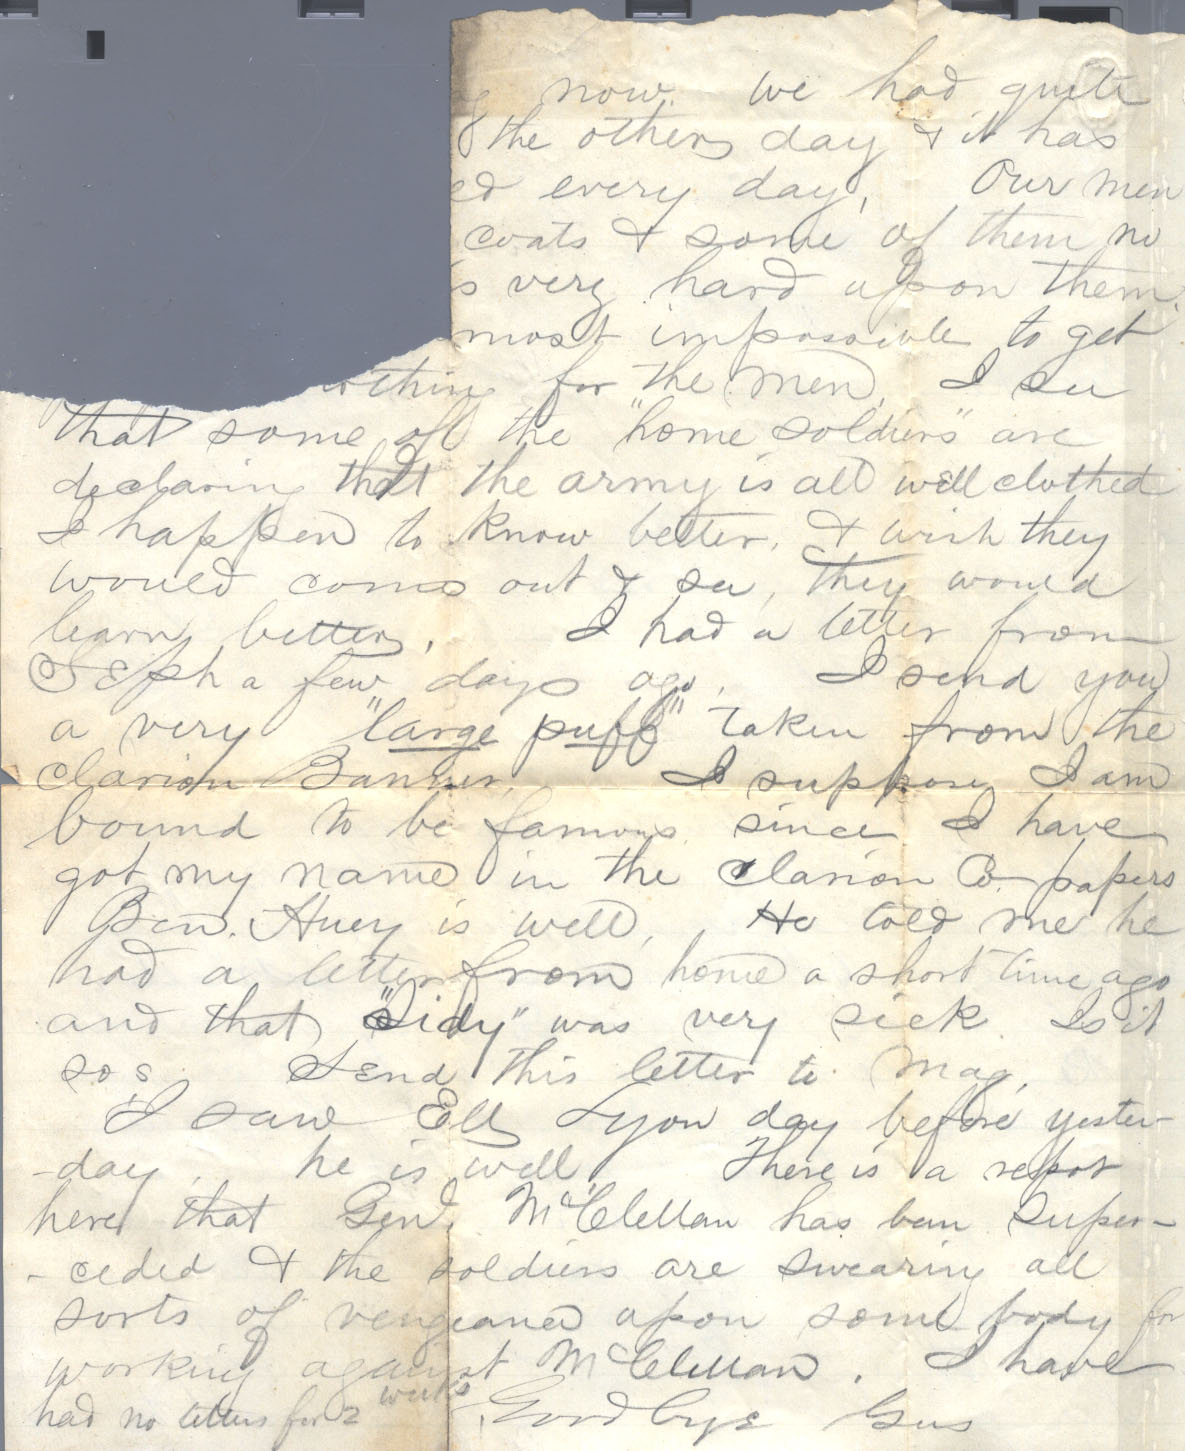 now. We had quite
the other day & it has
ed every day, Our men
coats & some of them no
s very hard upon them.
most impossible to get
othing for the men. I see
that some of the "home soldiers" are
declaring that the army is all well clothed
I happen to know better. I wish they
would come out & see, they would
learn better. I had a letter from
Seph a few days ago. I send you
a very "large puff" taken from the
Clarion Banner. I suppose I am
bound to be famous since I have
got my name in the Clarion Co. papers
Ben. Huey is well. He told me he
had a letter from home a short time ago
and that "Sidy" was very sick. Is it
so? Send this letter to Mag.
I saw Ell Lyon day before yester-
-day. he is well. There is a repot
here that Gen. McClellan has been super-
-ceded & the soldiers are swearing all
sorts of vengeance upon some body for
working against McClellan. I have
had no letters for 2 weeks Goodbye Gus